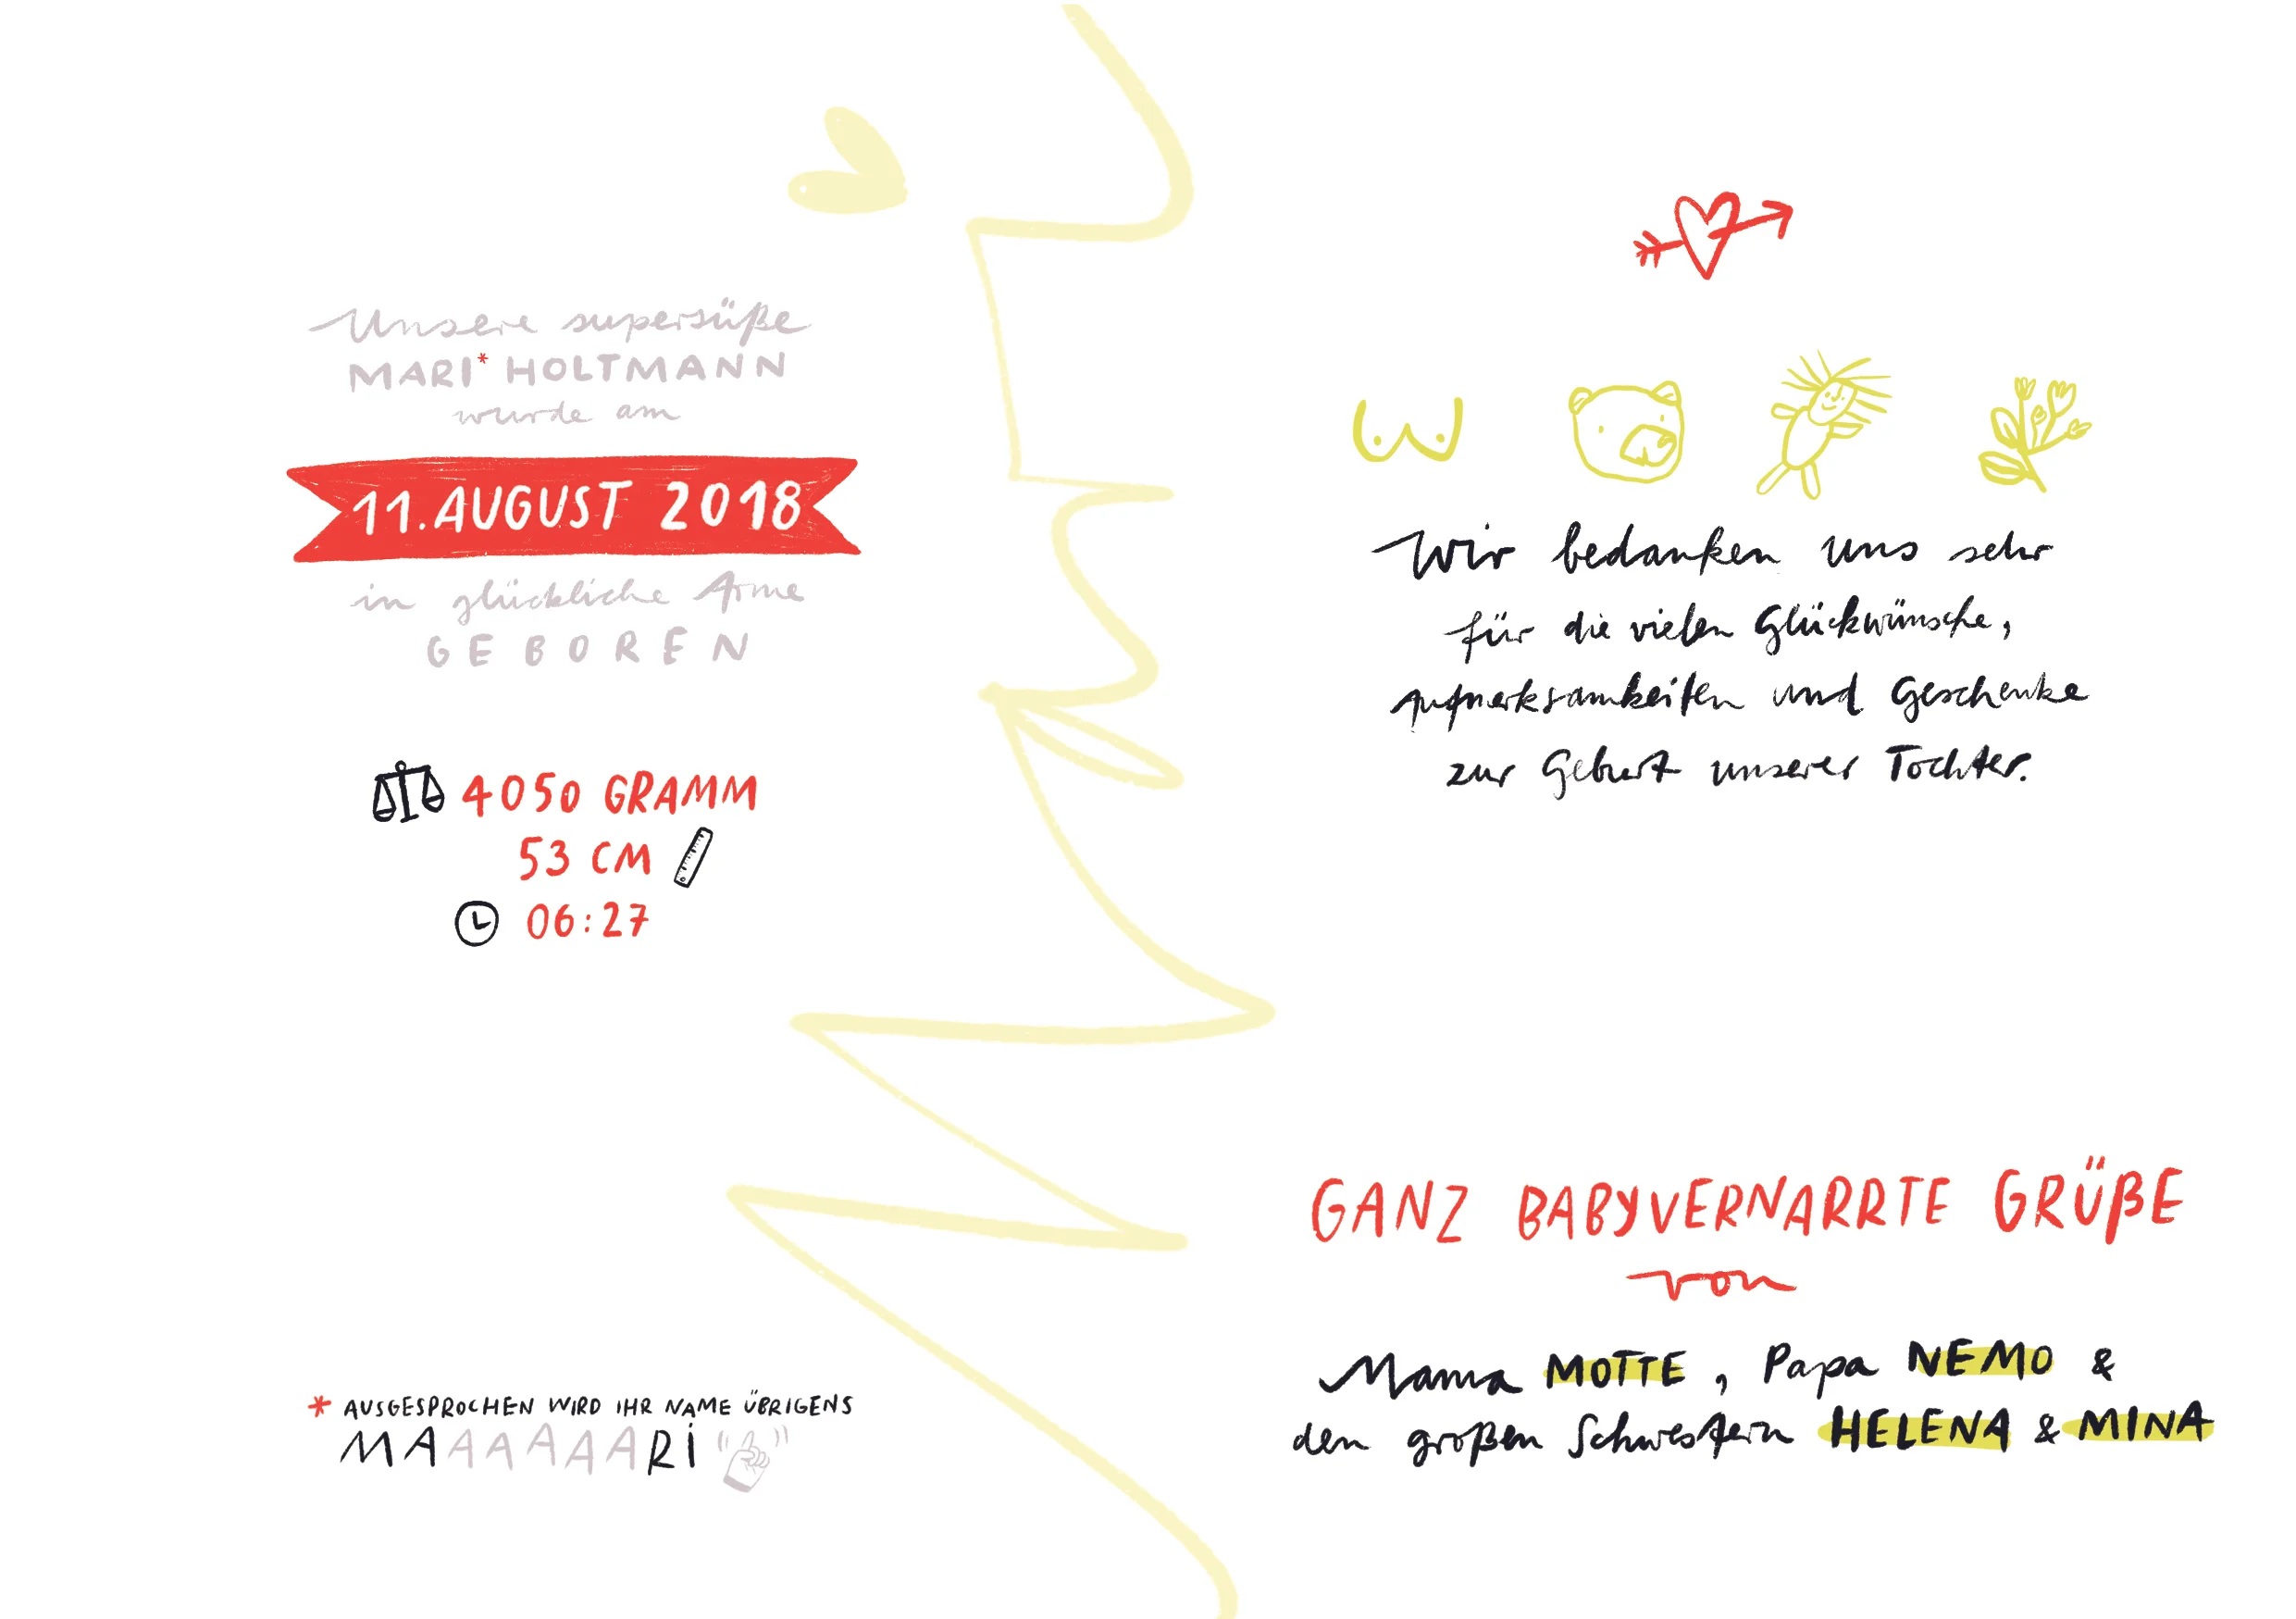 Unsere supersüße
MARI* HOLTMANN
wurde am
11. AUGUST 2018
in glückliche Arme
GEBOREN
4050 GRAMM
53 CM
06:27
* AUSGESPROCHEN WIRD IHR NAME ÜBRIGENS
MAAAAAARI
Wir bedanken uns sehr
für die vielen Glückwünsche,
Aufmerksamkeiten und Geschenke
zur Geburt unserer Tochter.
GANZ BABYVERNARRTE GRÜßE
von
Mama MOTTE, Papa NEMO &
den großen Schwestern HELENA & MINA